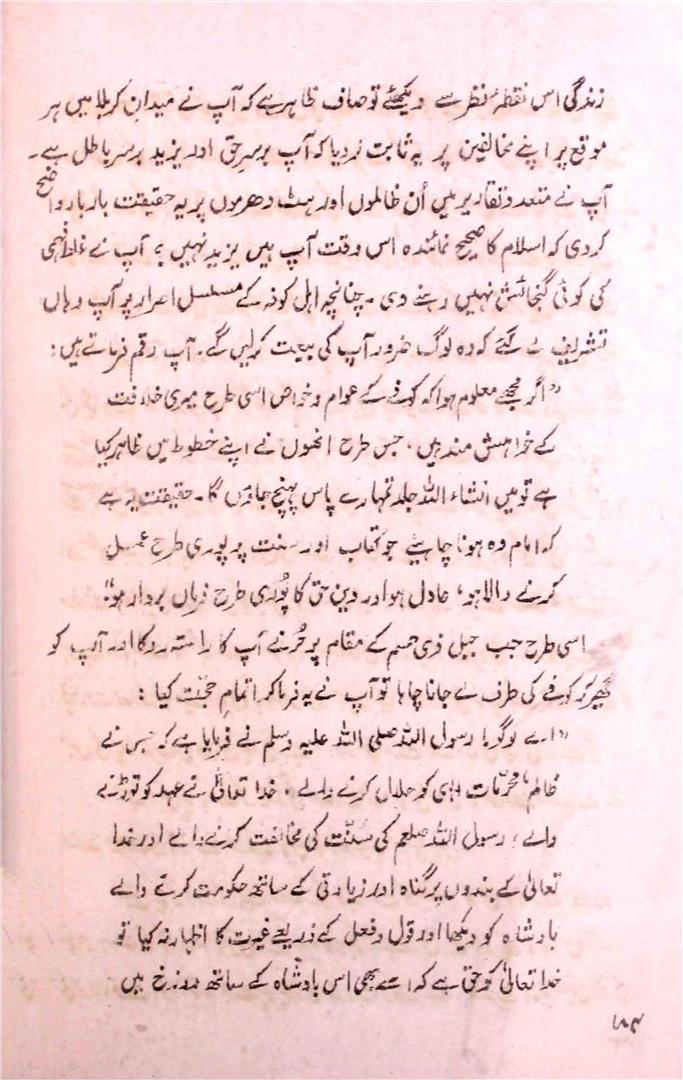 زندگی اس نقطۂ نظر سے دیکھئے تو صاف ظاہر ہے کہ آپ نے میدانِ کربلا میں ہر
موقع پر اپنے مخالفین پر یہ ثابت کردیا کہ آپ برسرِحق اور یزید برسرِ باطل ہے۔
آپ نے متعدد تقاریر میں اُن ظالموں اور ہٹ دھرموں پر یہ حقیقت بار بار واضح
کردی کہ اسلام کا صحیح نمائندہ اس وقت آپ ہیں یزید نہیں؛ آپ نے غلط فہمی
کی کوئی گنجائش نہیں رہنے دی۔ چنانچہ اہل کوفہ کے مسلسل اصرار پر آپ وہاں
تشریف لے گئے کہ وہ لوگ ضرور آپ کی بیعت کرلیں گے۔ آپ رقم فرماتے ہیں:
”اگر مجھے معلوم ہوا کہ کوفے کے عوام و خواص اسی طرح میری خلافت
کے خواہش مند ہیں، جس طرح انھوں نے اپنے خطوط میں ظاہر کیا
ہے تو میں انشاء اللہ جلد تمہارے پاس پہنچ جاؤں گا۔ حقیقت یہ ہے
کہ امام وہ ہونا چاہیئے جو کتاب اور سنت پر پوری طرح عمل
کرنے والا ہو، عادل ہو اور دین حق کا پُوری طرح فرماں بردار ہو“
اسی طرح جب جبل ذی حسم کے مقام پر حُر نے آپ کا راستہ روکا اور آپ کو
گھیر کر کوفے کی طرف لے جانا چاہا تو آپ نے یہ فرماکر اتمامِ حجّت کیا:
”اے لوگو! رسول اللہ صلی اللہ علیہ وسلم نے فرمایا ہے کہ جس نے
ظالم، محرّمات الٰہی کو حلال کرنے والے، خدا تعالیٰ کے عہد کو توڑنے
والے، رسول اللہ صلعم کی سُنّت کی مخالفت کرنے والے اور خدا
تعالیٰ کے بندوں پر گناہ اور زیادتی کے ساتھ حکومت کرنے والے
بادشاہ کو دیکھا اور قول و فعل کے ذریعے غیرت کا اظہار نہ کیا تو
خدا تعالیٰ کو حق ہے کہ اسے بھی اس بادشاہ کے ساتھ دوزخ میں